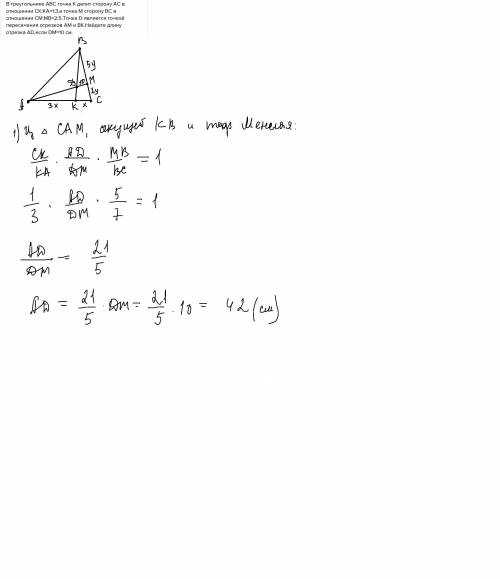 В треугольнике ABC точка К делит сторону АС в
отношении СК:КА=1:3,а точка М сторону ВС в
отношении СМ:МВ=2:5.Точка D является точкой
пересечения отрезков АМ и ВК.Найдите длину
отрезка AD,если DM=10 см.
B
5y
D 10 M
2y
A 3x K x C
1) Из △ CAM, секущей KB и теор Менелая:
CK/KA · AD/DM · MB/BC = 1
1/3 · AD/DM · 5/7 = 1
AD/DM = 21/5
AD = 21/5 · DM = 21/5 · 10 = 42 (см)